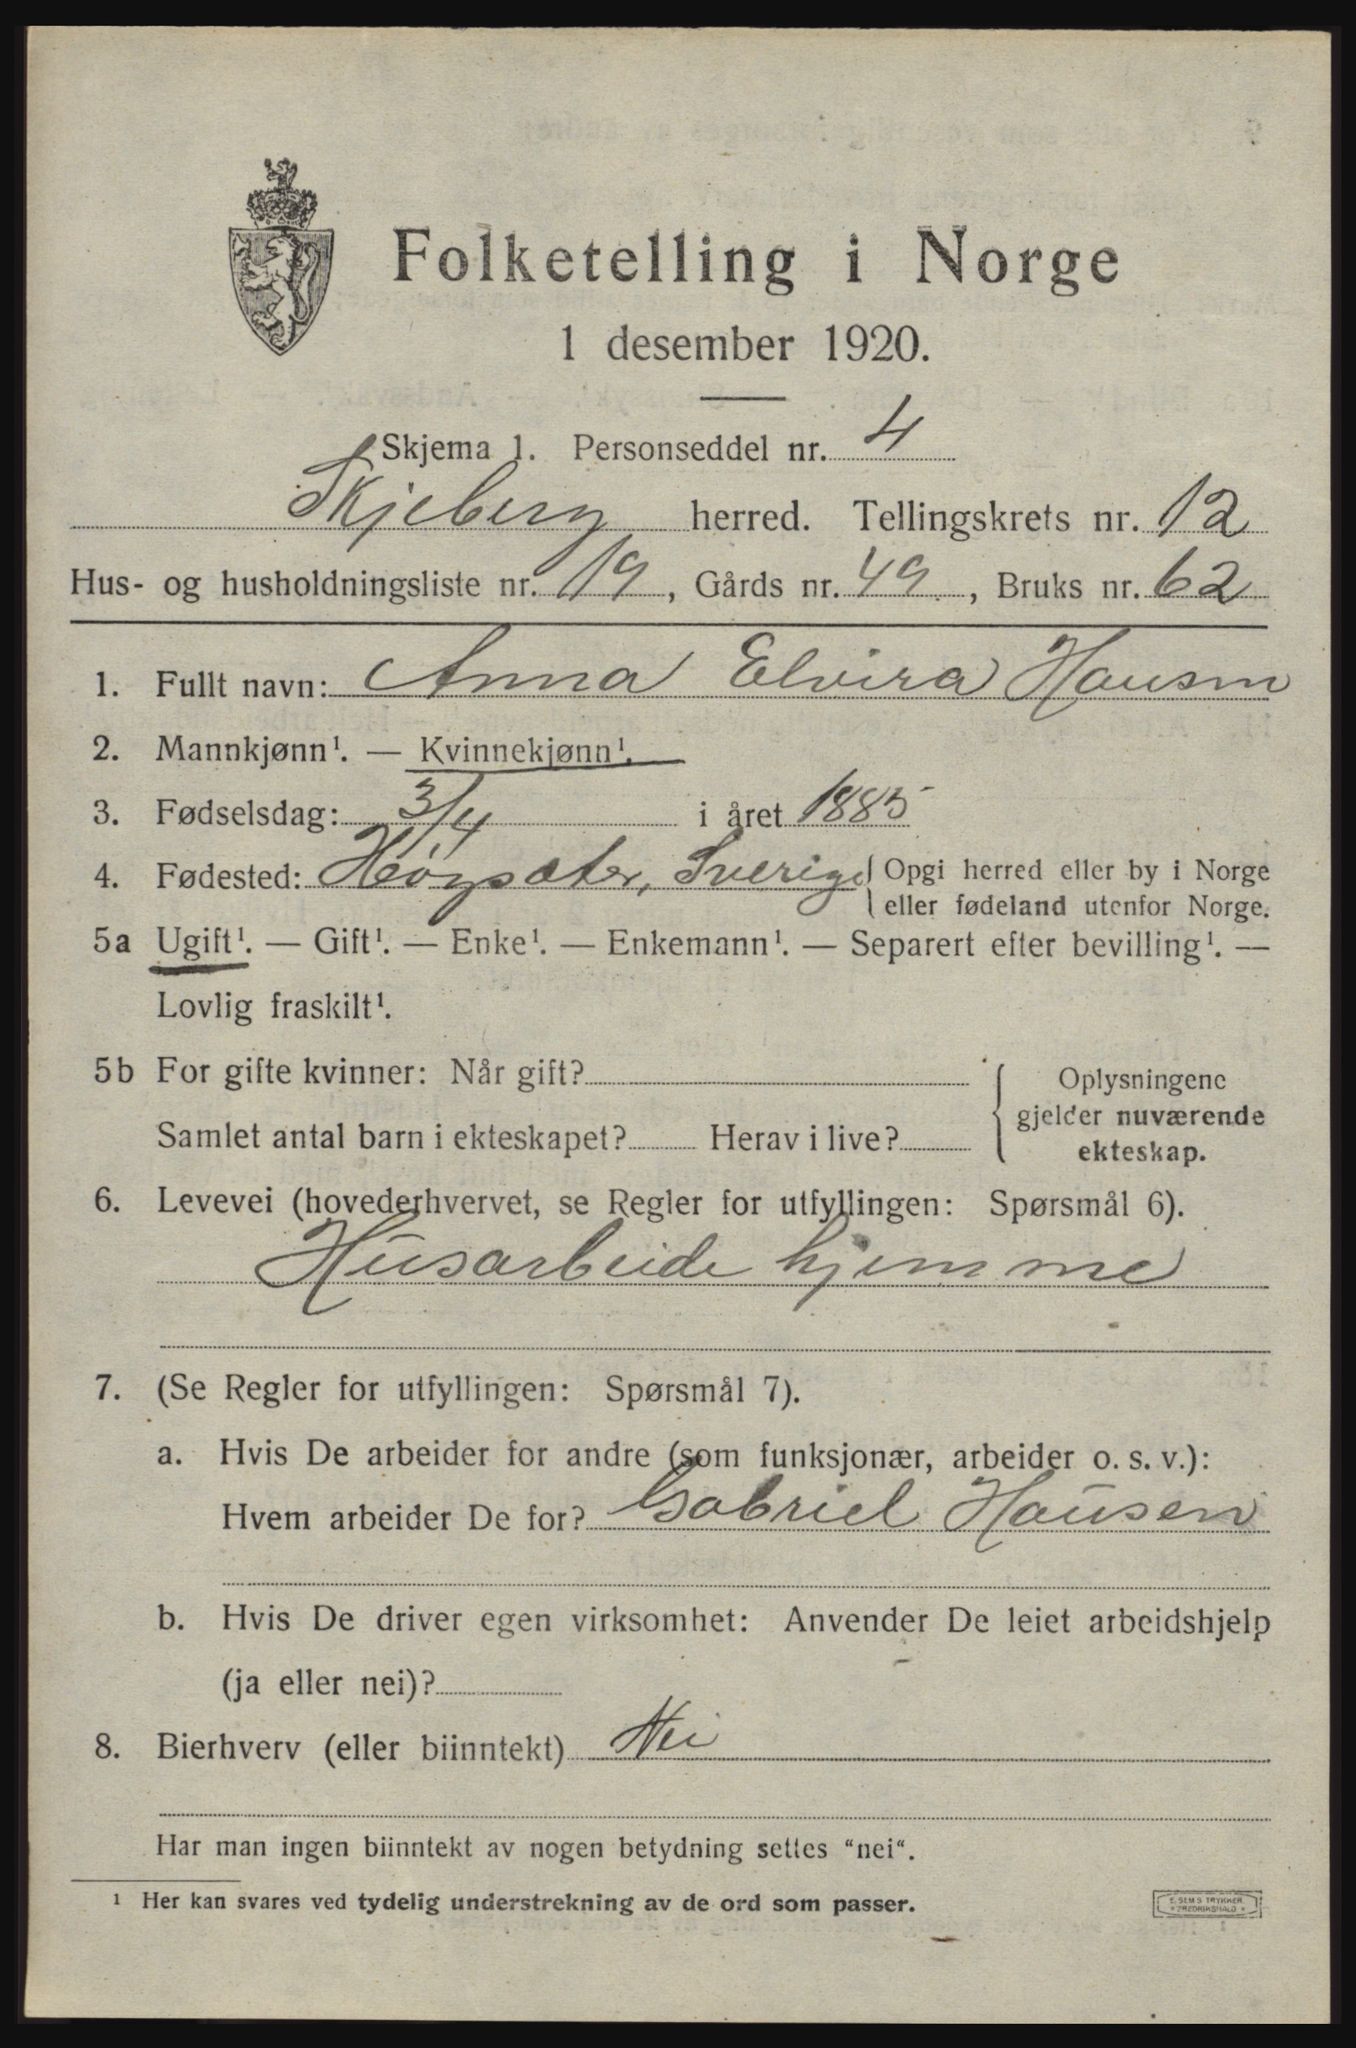 Folketelling i Norge
1 desember 1920.
Skjema 1. Personseddel nr. 4
Skjeberg herred. Tellingskrets nr. 12
Hus- og husholdningsliste nr. 19, Gårds nr. 49, Bruks nr. 62
1. Fullt navn: Anna Elvira Hansen
2. Mannkjønn¹. — Kvinnekjønn¹.
3. Fødselsdag: 3/4 i året 1885
4. Fødested: Høgsæter, Sverige { Opgi herred eller by i Norge
eller fødeland utenfor Norge.
5a Ugift¹. — Gift¹. — Enke¹. — Enkemann¹. — Separert efter bevilling¹. —
Lovlig fraskilt¹.
5b For gifte kvinner: Når gift? { Oplysningene
gjelder nuværende
Samlet antal barn i ekteskapet? Herav i live?
ekteskap.
6. Levevei (hovederhvervet, se Regler for utfyllingen: Spørsmål 6).
Husarbeide hjemme
7. (Se Regler for utfyllingen: Spørsmål 7).
a. Hvis De arbeider for andre (som funksjonær, arbeider o. s. v.):
Hvem arbeider De for? Gabriel Hansen
b. Hvis De driver egen virksomhet: Anvender De leiet arbeidshjelp
(ja eller nei)?
8. Bierhverv (eller biinntekt) Nei
Har man ingen biinntekt av nogen betydning settes "nei“.
¹ Her kan svares ved tydelig understrekning av de ord som passer.
E. SEMS TRYKKERI
FREDRIKSHALD